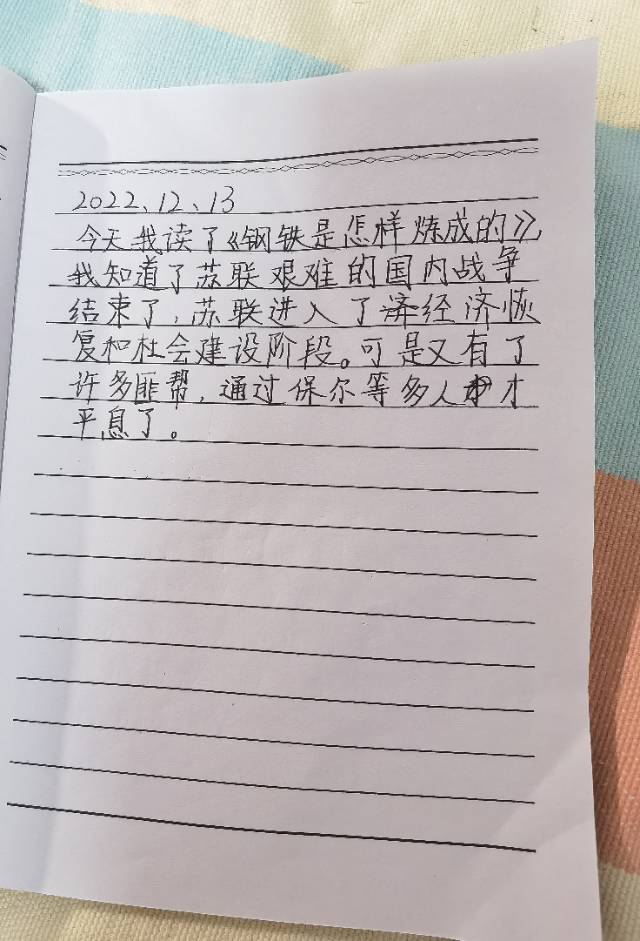 2022、12、13
今天我读了《钢铁是怎样炼成的》,
我知道了苏联艰难的国内战争
结束了,苏联进入了经济恢
复和社会建设阶段。可是又有了
许多匪帮,通过保尔等多人才
平息了。